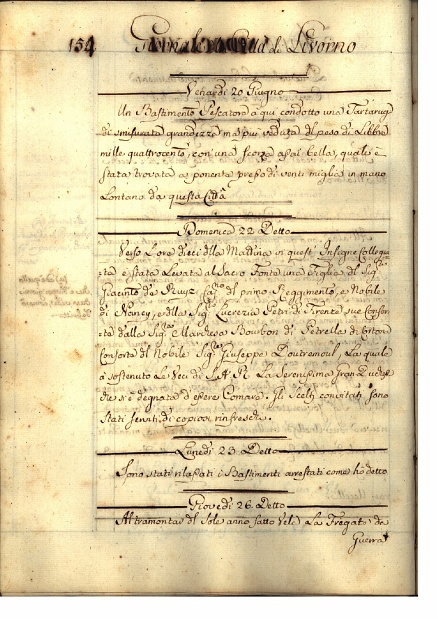 154 Giornale della Città di Livorno
Venardi 20 Giugno
Un Bastimento Pescatore à qui condotto una Tartarug
di smisurata grandezza mai più veduta del peso di Libbre
mille quattrocento, con una scorza assai bella, quale è
stata trovata a ponente presso di venti miglia in mare
Lontano da questa Città
Domenica 22 Detto
Verso l'ore dieci della Mattina in questa Insigne Collegia
ta è stata Levata al Sacro Fonte una Figlia del Sigr
Giacinto de del primo Reggimento, e Nobile
di Nancy, e della Sigra Lucrezia Petri di Firenze sue Consor
te dalla Sigra Bourbon di Petrella di Cortona
Consorte del Nobile Sigr Giuseppe La quale
à sostenuto Le Veci di S.A.R. La Serenissima Gran Duches
che s'è degnata d'essere Comare. Gli Scelti convitati sono
Stati serviti di copiosi rinfreschi.
Lunedi 23 Detto
Sono stati rilasciati i Bastimenti arrestati come hò detto
Giovedi 26 Detto
Al tramontar del Sole anno fatto Vele La Fregata da
Guerra